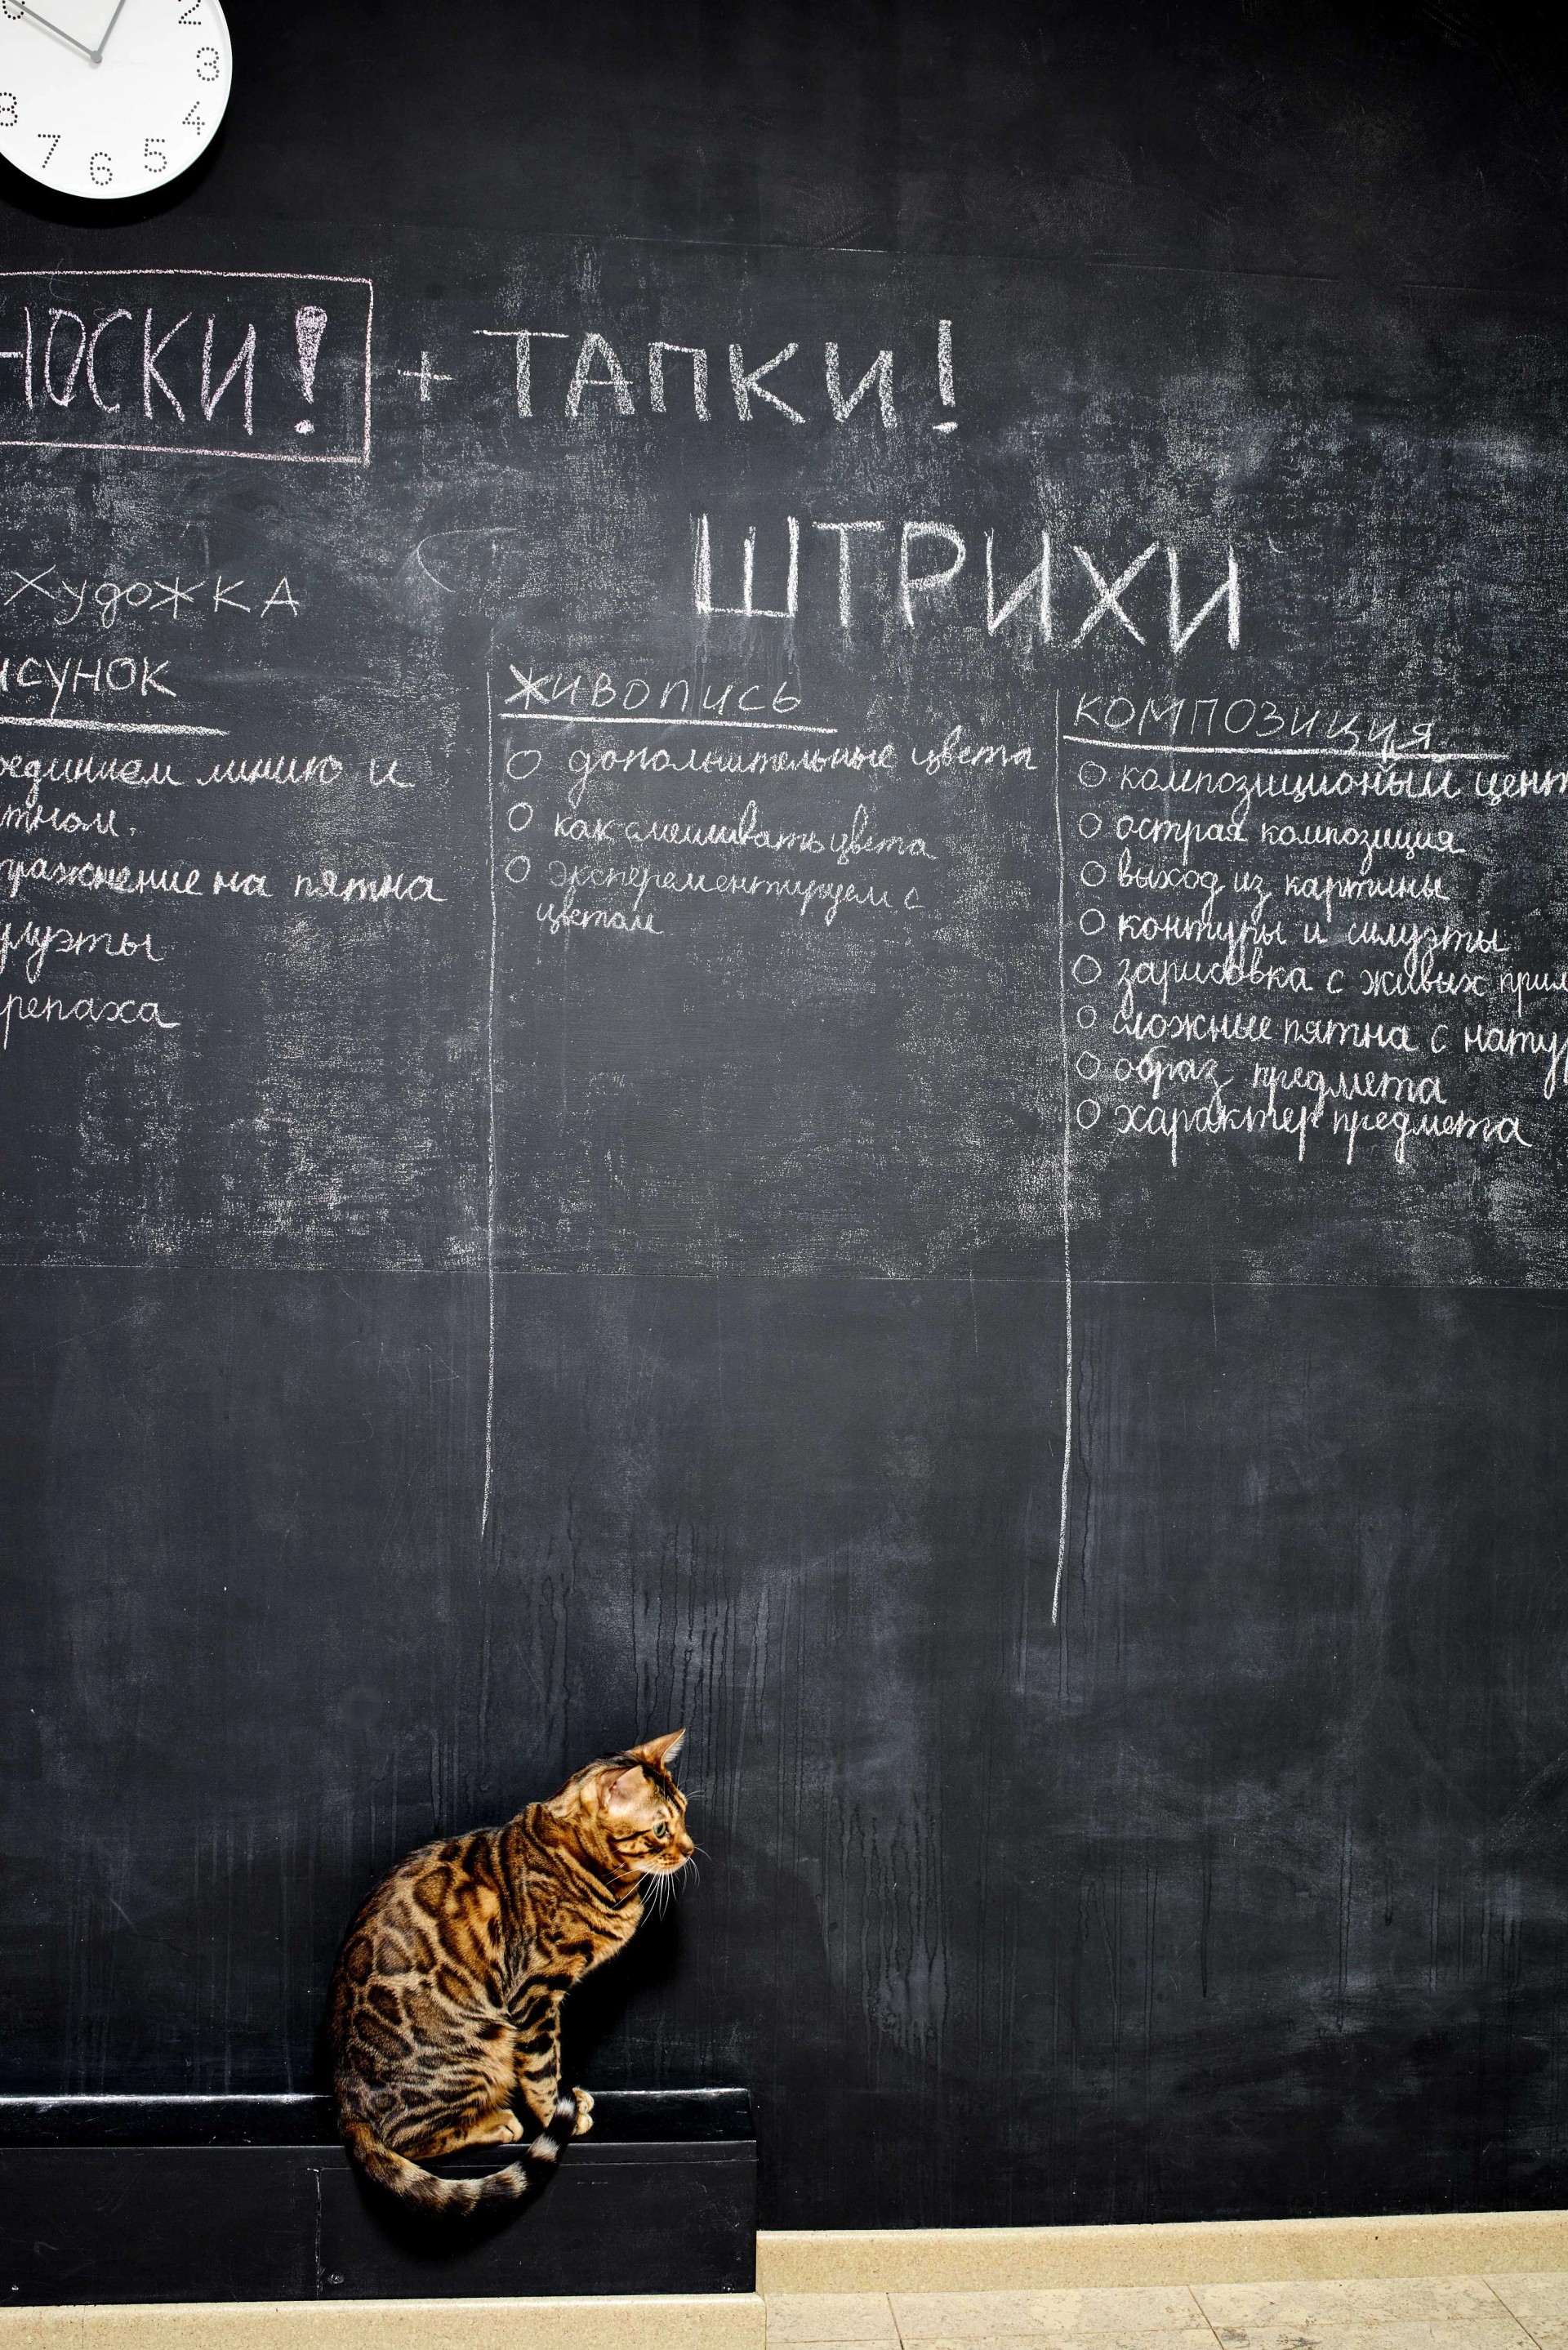 2
3
4
5
6
7
8
НОСКИ! + ТАПКИ!
ШТРИХИ
ХудоЖКА
исунок
оединяем линию и
тном.
пражнение на пятна
луэты
репаха
Живопись
дополнительные цвета
как смешивать цвета
эксперементируем с
цветом
композиция
композиционый цент
острая композиция
выход из картины
контуры и силуэты
зарисовка с живых
сложные пятна с нату
образ предмета
характер предмета